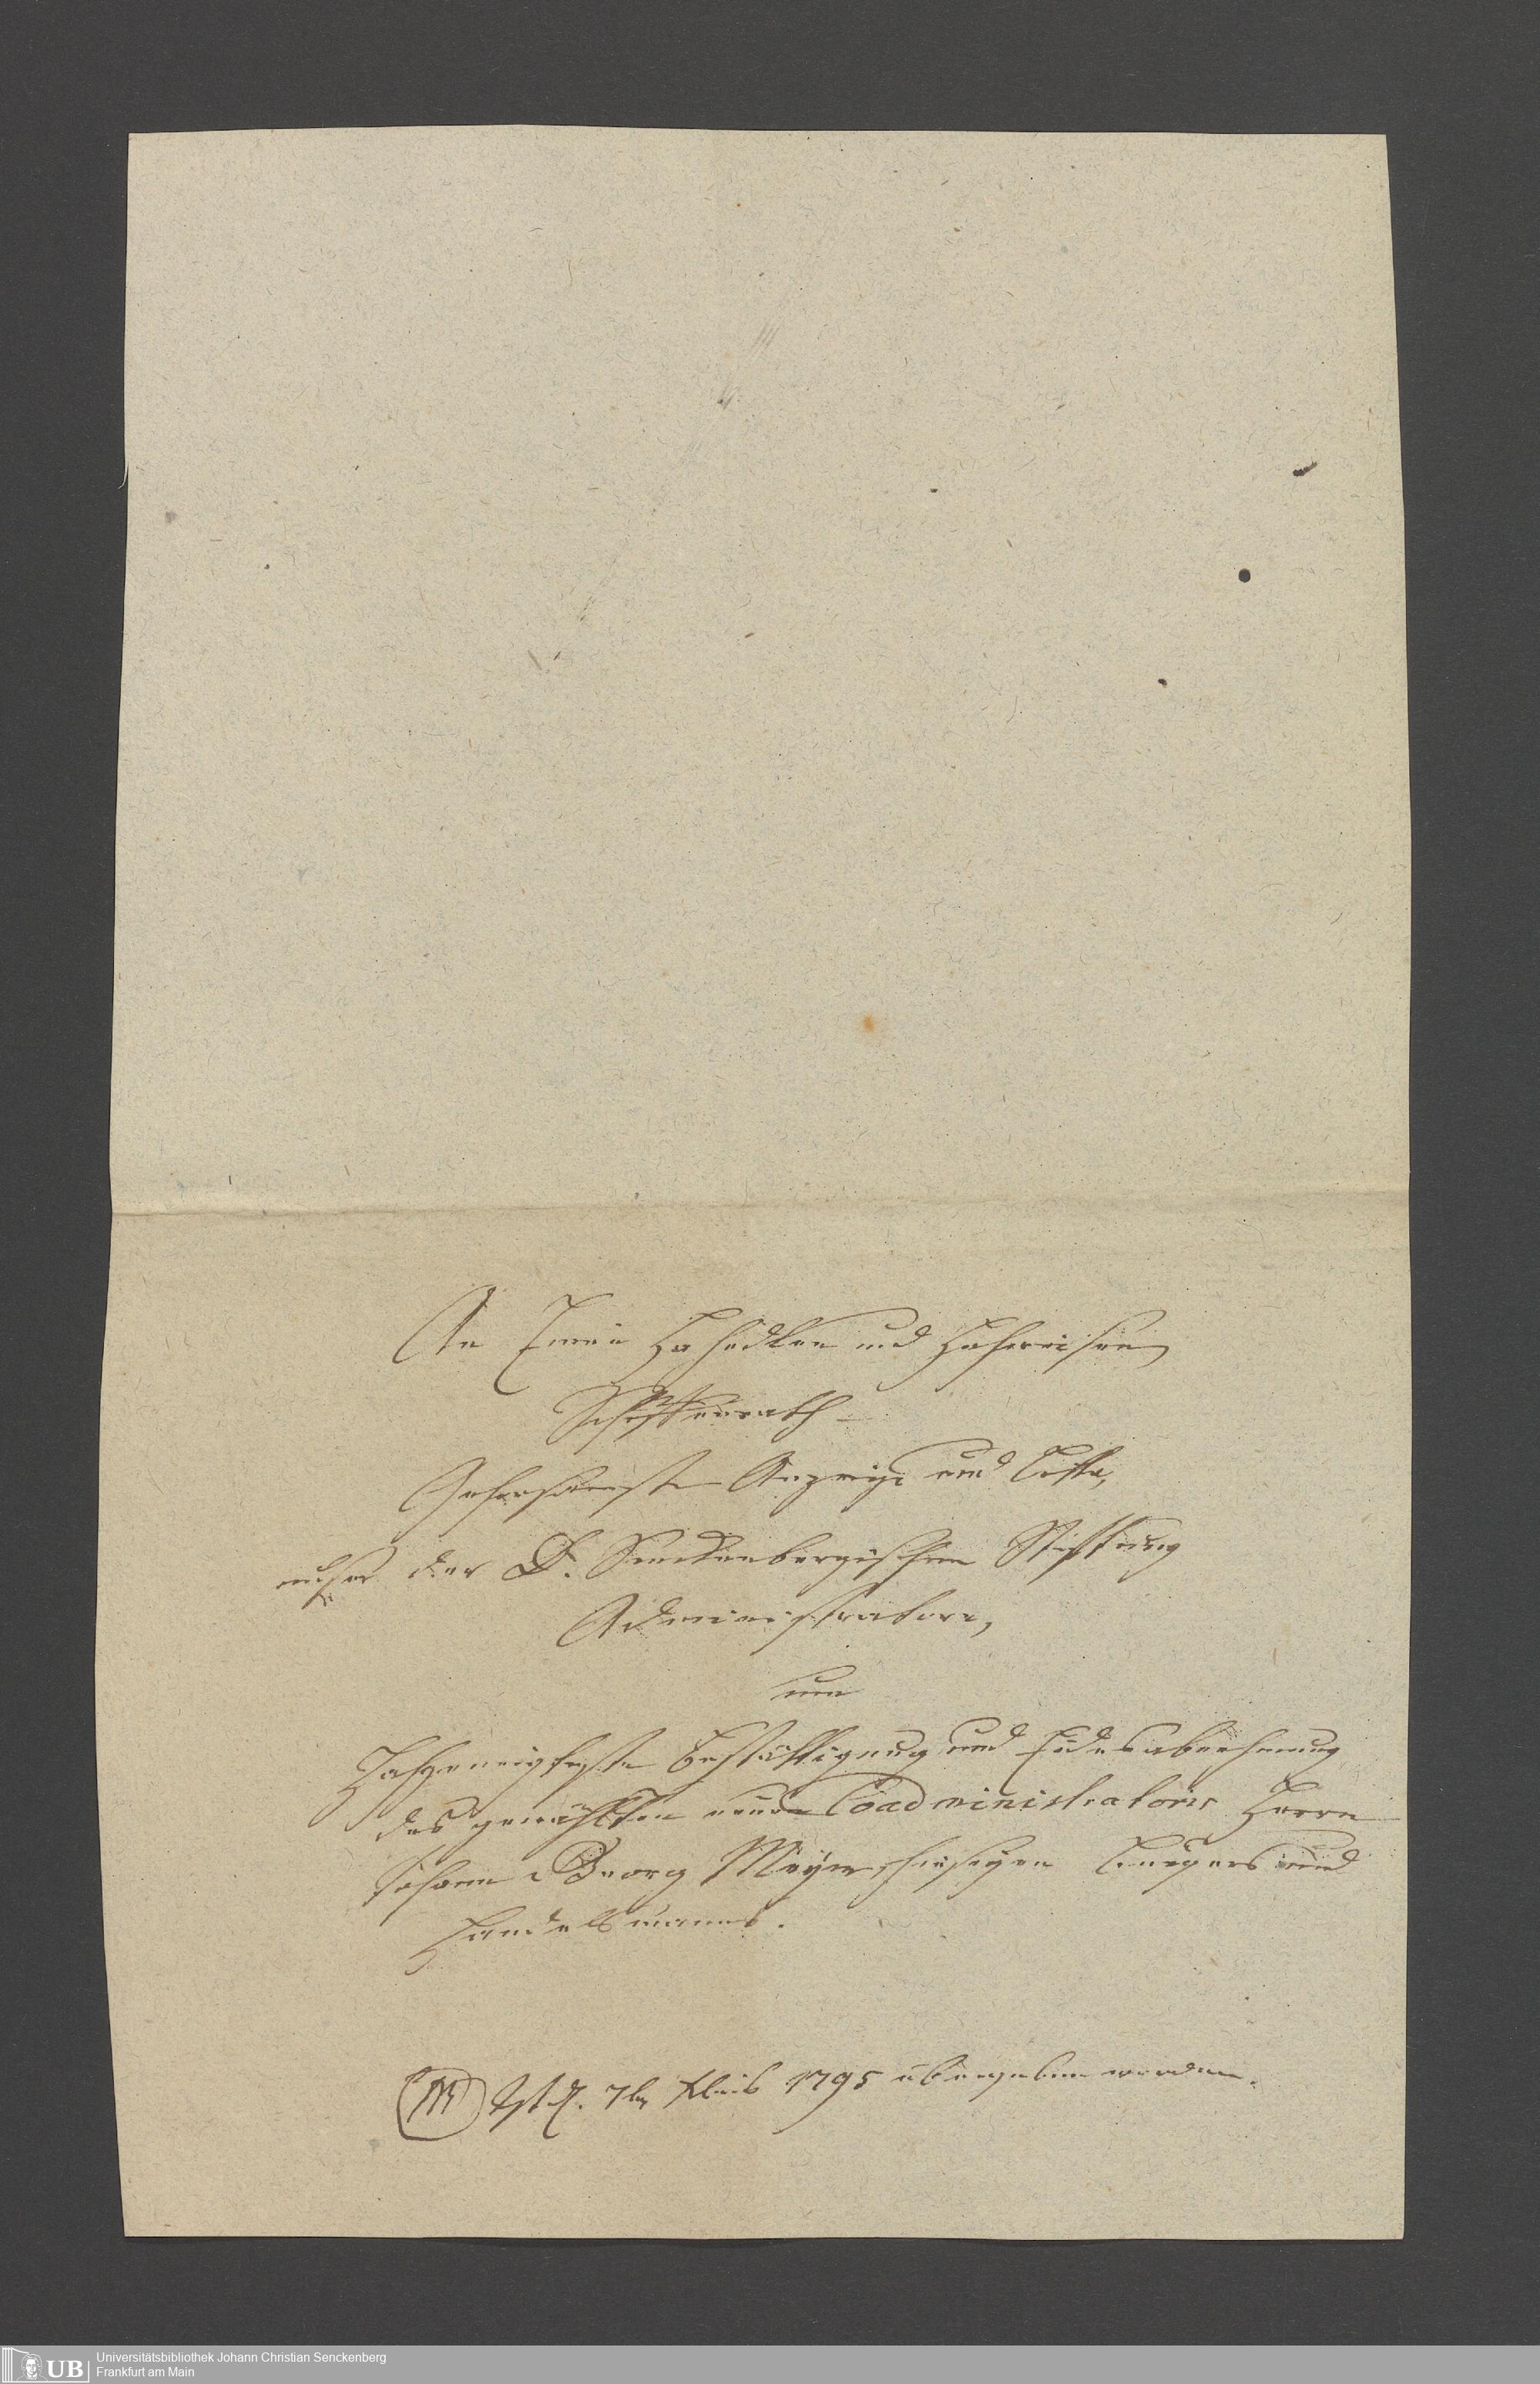 An Einen Hochedlen und Hochweisen
Schöffenrath
Gehorsamste Anzeige und Bitte,
der D. Senckenbergischen Stiftung
Administratoren,
um
Hochgeneigteste Bestättigung und Eidesabnehmung
des gewählten neuen Coadministratoris Herrn
Johann Georg Meyer, hiesigen Burgers und
Handelsmanns.
Ist d. 7ten 1795 übergeben worden.
UB
Universitätsbibliothek Johann Christian Senckenberg
Frankfurt am Main